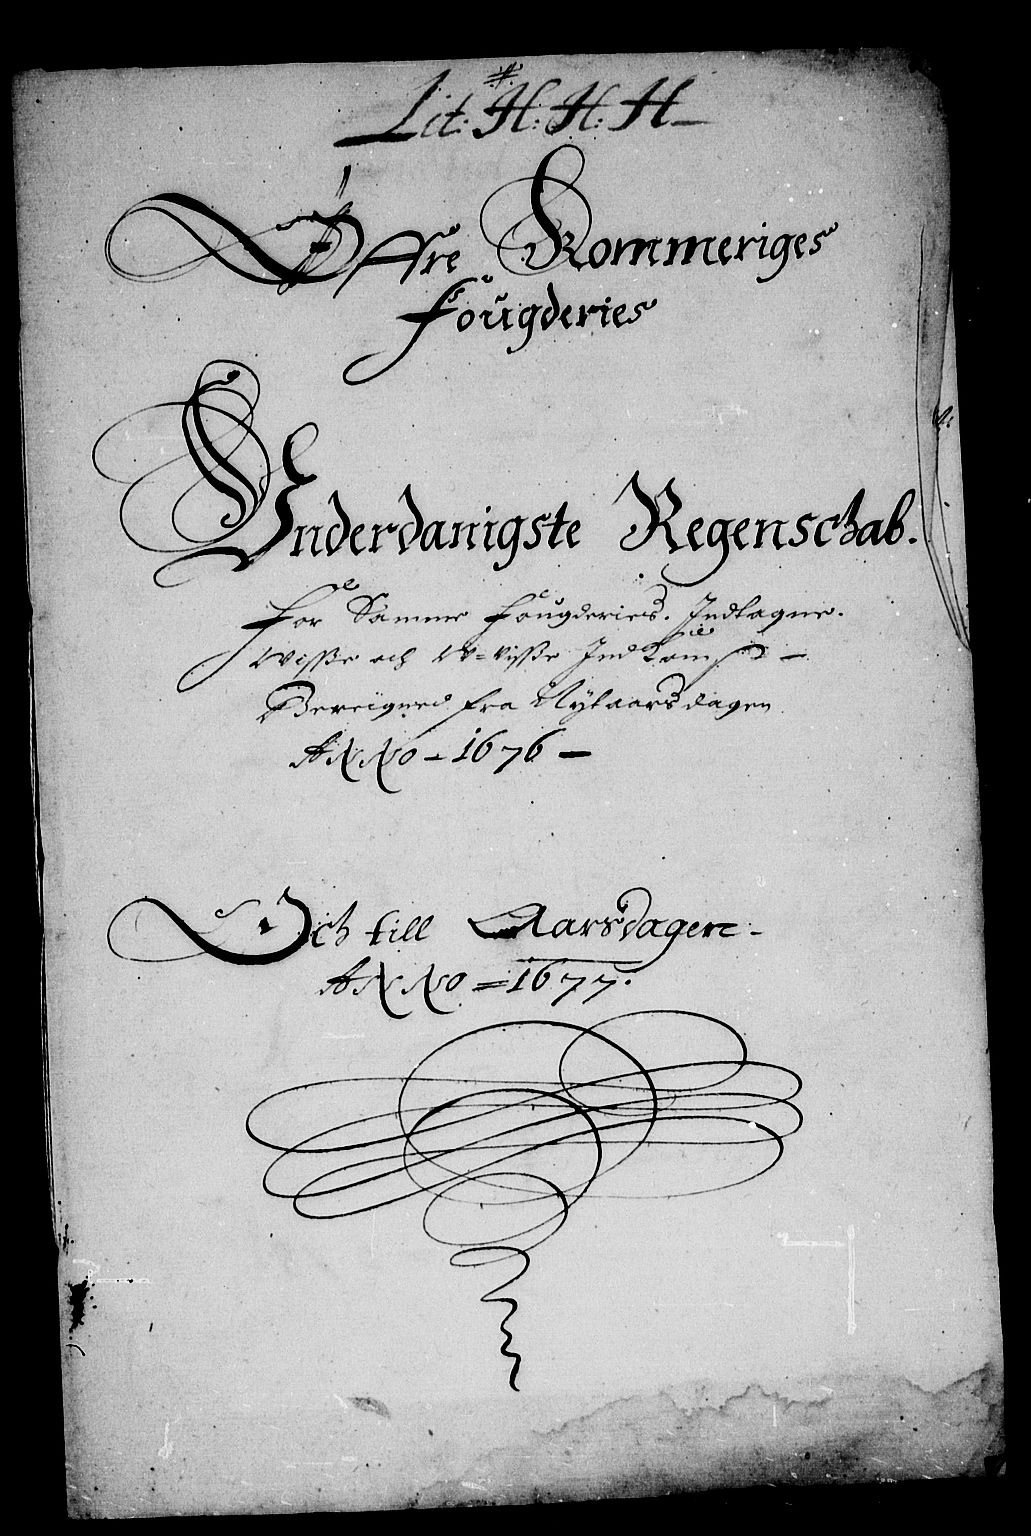 Lit: H: H: H
Øffre Rommeriges
Fougderies
Vnderdanigste Regenschab.
For Samme Fougderies. Indtagne.
Wisse och W=visse Indkomst
Bereigned fra Nytaarsdagen
ANNO - 1676 -
Och till Aarsdagen -
ANNO = 1677.